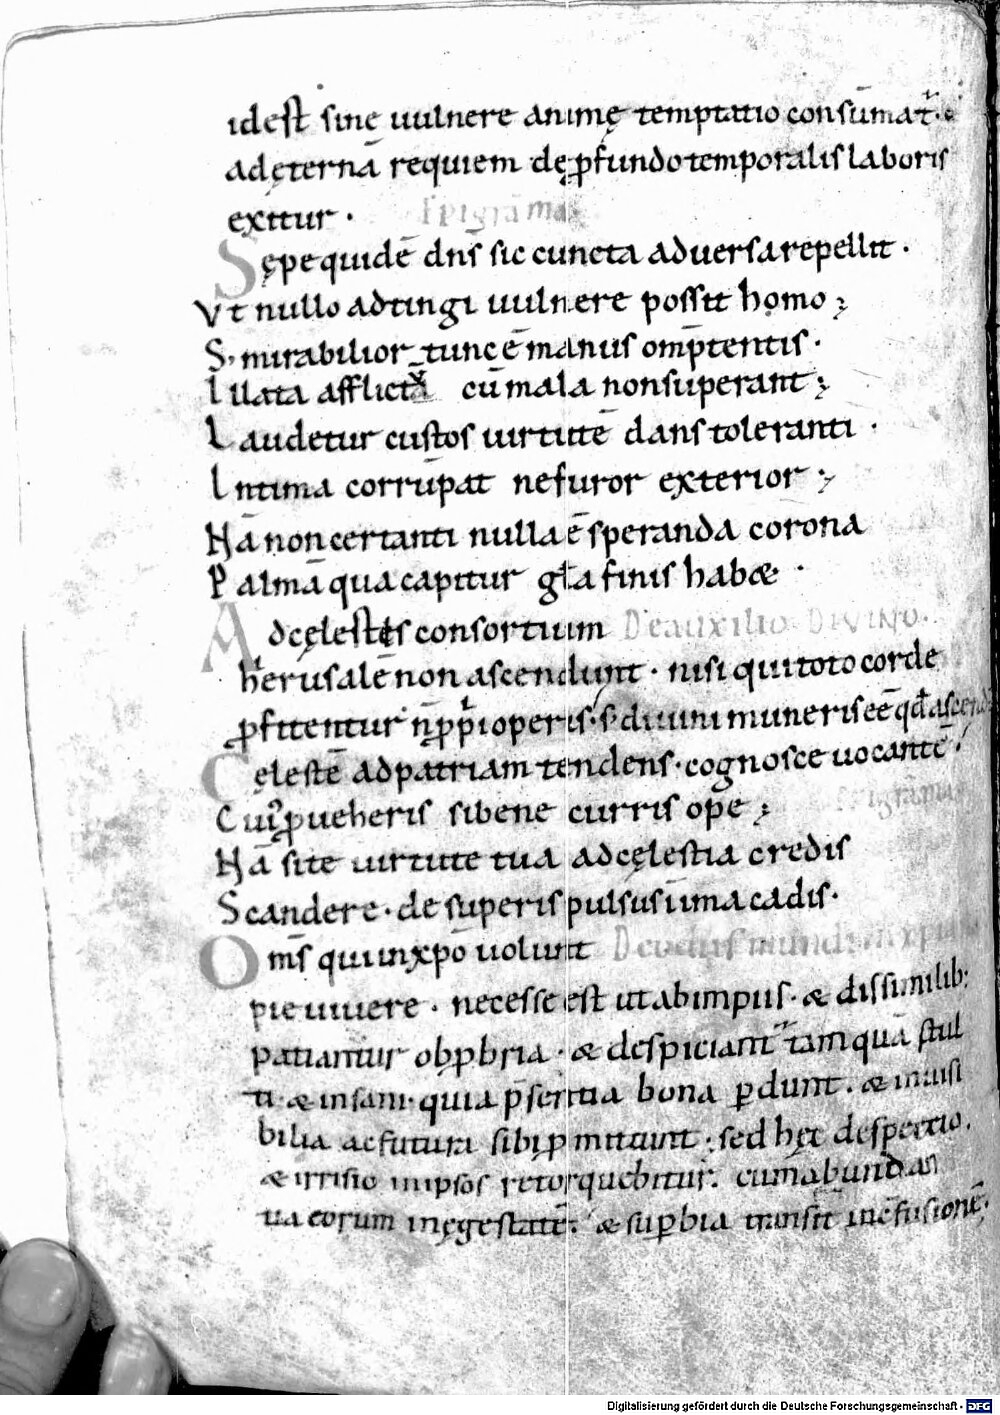 idest sine uulnere animę temptatio consūmat᷑.
adęternā requiem dę ꝓfundo temporalis laboris
exitur . Epigrāma
Sępe quidē dn̄s sic cuncta aduersa repellit .
Vt nullo adtingi uulnere possit homo ;
S; mirabilior tunc ē manus omp̄tentis .
Illata afflictū cū mala non superant ;
Laudetur custos uirtutē dans toleranti .
Intima corrūpat ne furor exterior ;
Nā non certanti nulla ē speranda corona
Palmā qua capitur gl̄a finis habet .
Ad cęlestis consortium De auxilio DIVINO .
hierusalē non ascendunt . nisi qui toto corde
ꝓfitentur n̄ ꝓprii operis . s; diuini muneris eē qđ ascend
Cęlestē ad patriam tendens . cognosce uocantē .
Cui ꝓueheris si bene curris ope ; Epigrāma
Nā si te uirtute tua ad cęlestia credis
Scandere . de superis pulsus ī ima cadis .
Om̄s qui in xp̄o uolunt De odiis mundi in xp̄ian
pie uiuere . necesse est ut ab impiis . & dissimilib;
patiantur obꝓbria . & despiciant᷑ tam quā stul
ti . & insani . quia p̄sentia bona ꝑdunt . & inuisi
bilia ac futura sibi ꝓmittunt . sed hęc despectio .
& irrisio in ipsos retorquebitur . cum abundan
tia eorum in ęgestatē . & suꝑbia transit in cōfusionē .
Digitalisierung gefördert durch die Deutsche Forschungsgemeinschaft - DFG